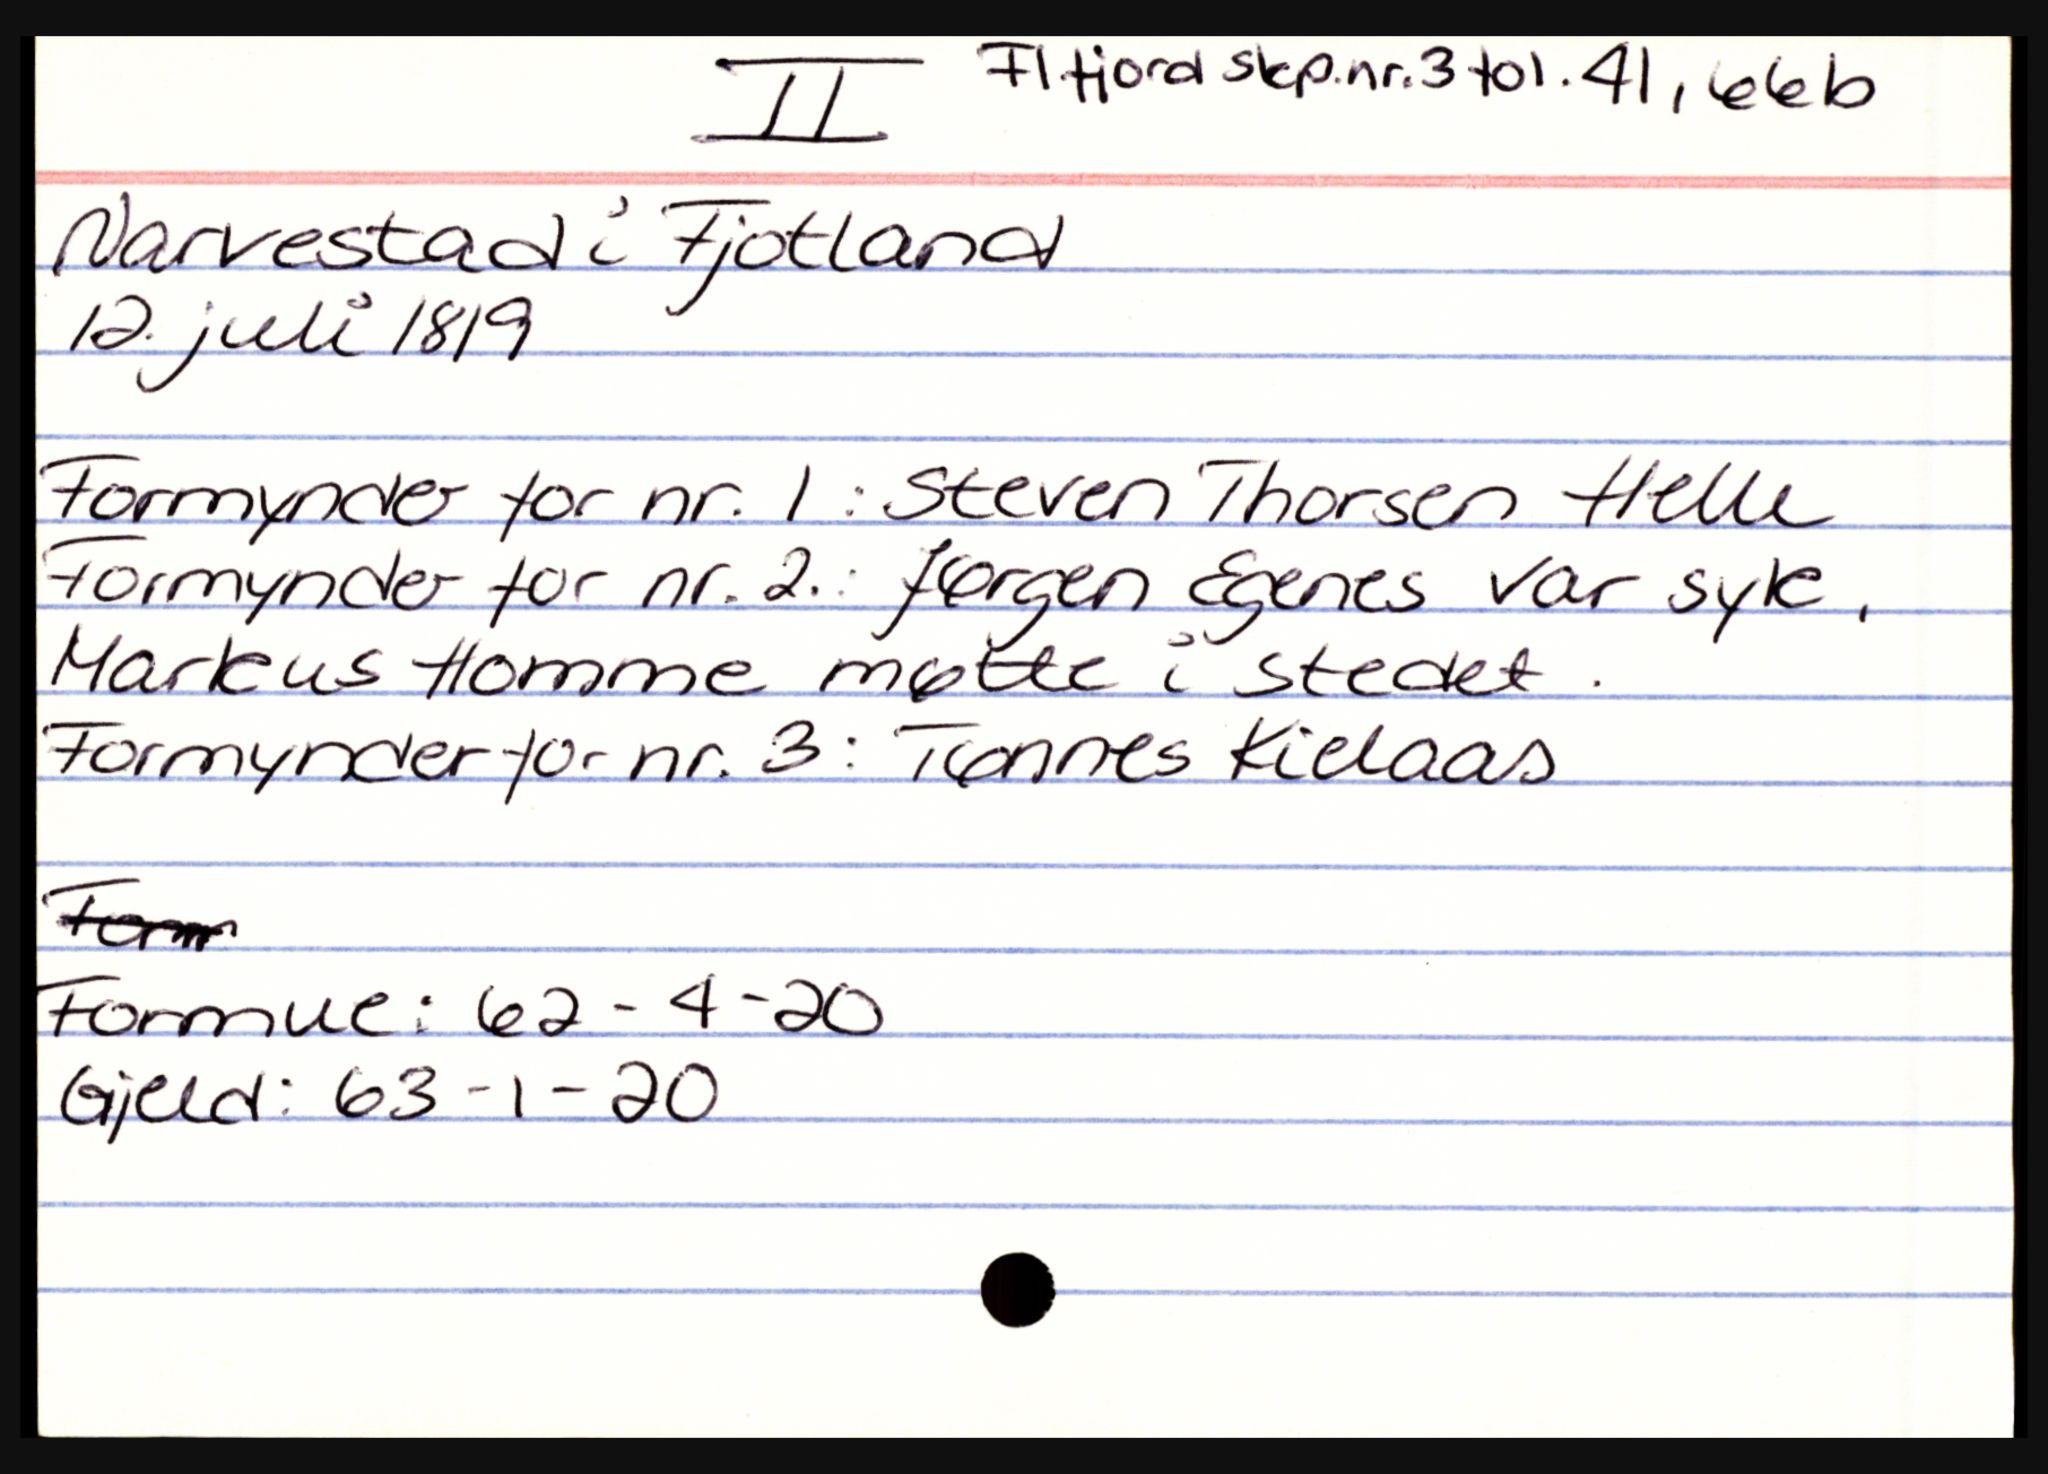 II Fl.fjord skp.nr.3 fol. 41, 66b
Narvestad i Fjotland
12. juli 1819
Formynder for nr. 1 : Steven Thorsen Helle
Formynder for nr. 2. : Jørgen Egenes var syk,
Markus Homme møtte i stedet.
Formynder for nr. 3 : Tønnes Kielaas
Form
Formue : 62 - 4 - 20
Gjeld : 63 - 1 - 20